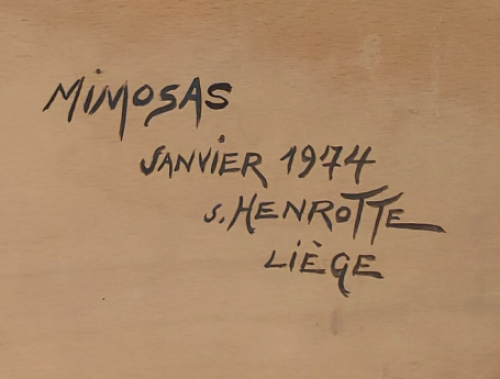 MiMOSAS
JANViER 1974
S. HENROTTE
LiÈGE